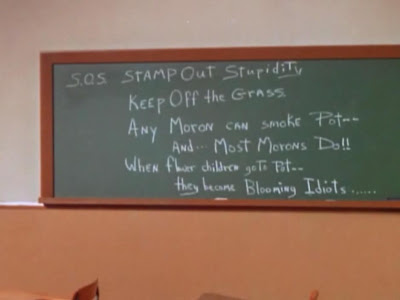 S.O.S. STAMP Out StupidiTy
KEEP Off the GRASS
ANY MORON CAN SMOKE POT--
AND... MOST MORONS DO!!
WHEN flower children go to Pot--
they become Blooming Idiots......